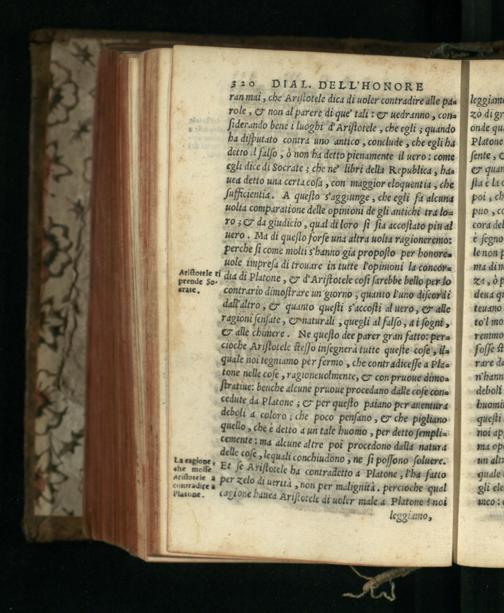 320 DIAL. DELL'HONORE
ran mai, che Aristotele dica di uoler contradire alle pa-
role, & non al parere di que' tali: & uedranno, con-
siderando bene i luoghi d'Aristotele, che egli; quando
ha disputato contra uno antico, conclude, che egli ha
detto il falso, ò non ha detto pienamente il uero: come
egli dice di Socrate; che ne' libri della Republica, ha-
uea detto una certa cosa, con maggior eloquentia, che
sufficientia. A questo s'aggiunge, che egli fa alcuna
uolta comparatione delle opinioni de gli antichi tra lo-
ro; & da giudicio, qual di loro si sia accostato piu al
uero. Ma di questo forse una altra uolta ragioneremo:
perche si come molti s'hanno gia proposto per honore-
uole impresa di trouare in tutte l'opinioni la concor-
Aristotele ri
prende So-
crate.
dia di Platone, & d'Aristotele cosi sarebbe bello per lo
contrario dimostrare un giorno, quanto l'uno discordi
dall'altro, & quanto questi s'accosti al uero, & alle
ragioni sensate, & naturali, quegli al falso, a i sogni,
& alle chimere. Ne questo dee parer gran fatto: per-
cioche Aristotele stesso insegnerà tutte queste cose, il-
quale noi tegniamo per fermo, che contradicesse a Pla-
tone nelle cose, ragioneuolmente, & con pruoue dimo-
stratiue: benche alcune pruoue procedano dalle cose con-
cedute da Platone; & per questo paiano per auentura
deboli a coloro; che poco pensano, & che pigliano
quello, che è detto a un tale huomo, per detto sempli-
cemente: ma alcune altre poi procedono dalla natura
delle cose, lequali conchiudono, ne si possono soluere.
La ragione,
che mosse
Aristotele a
contradire a
Platone.
Et se Aristotele ha contradetto a Platone, l'ha fatto
per zelo di uerità, non per malignità. percioche qual
cagione hauea Aristotele di uoler male a Platone? noi
leggiamo,
leggiam
zo di gr
onde qu
Platone
sente, &
& quan
sta è le
poi, ch
puo,
cora del
è segno
le non p
ma di n
teuano
to'l mo
remmo
fosse st
rare da
n'hann
deboli
huomi
questi
noi ap
ma op
un alt
quale
gli ele